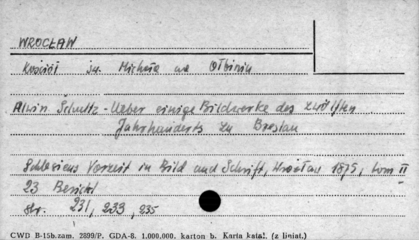 WROCŁAW
Kościół św. Michała na Ołbiniu
Alwin Schultz - Ueber einige Bildwerke des zwölften
Jahrhunderts zu Breslau
Schlesiens Vorzeit in Bild und Schrift, Wrocław 1875, tom II
23 Bericht
str. 231, 233, 235
CWD B-15h.zam. 2899/P. GDA-8. 1.000.000. karton b. Karta katal. (z liniat.)